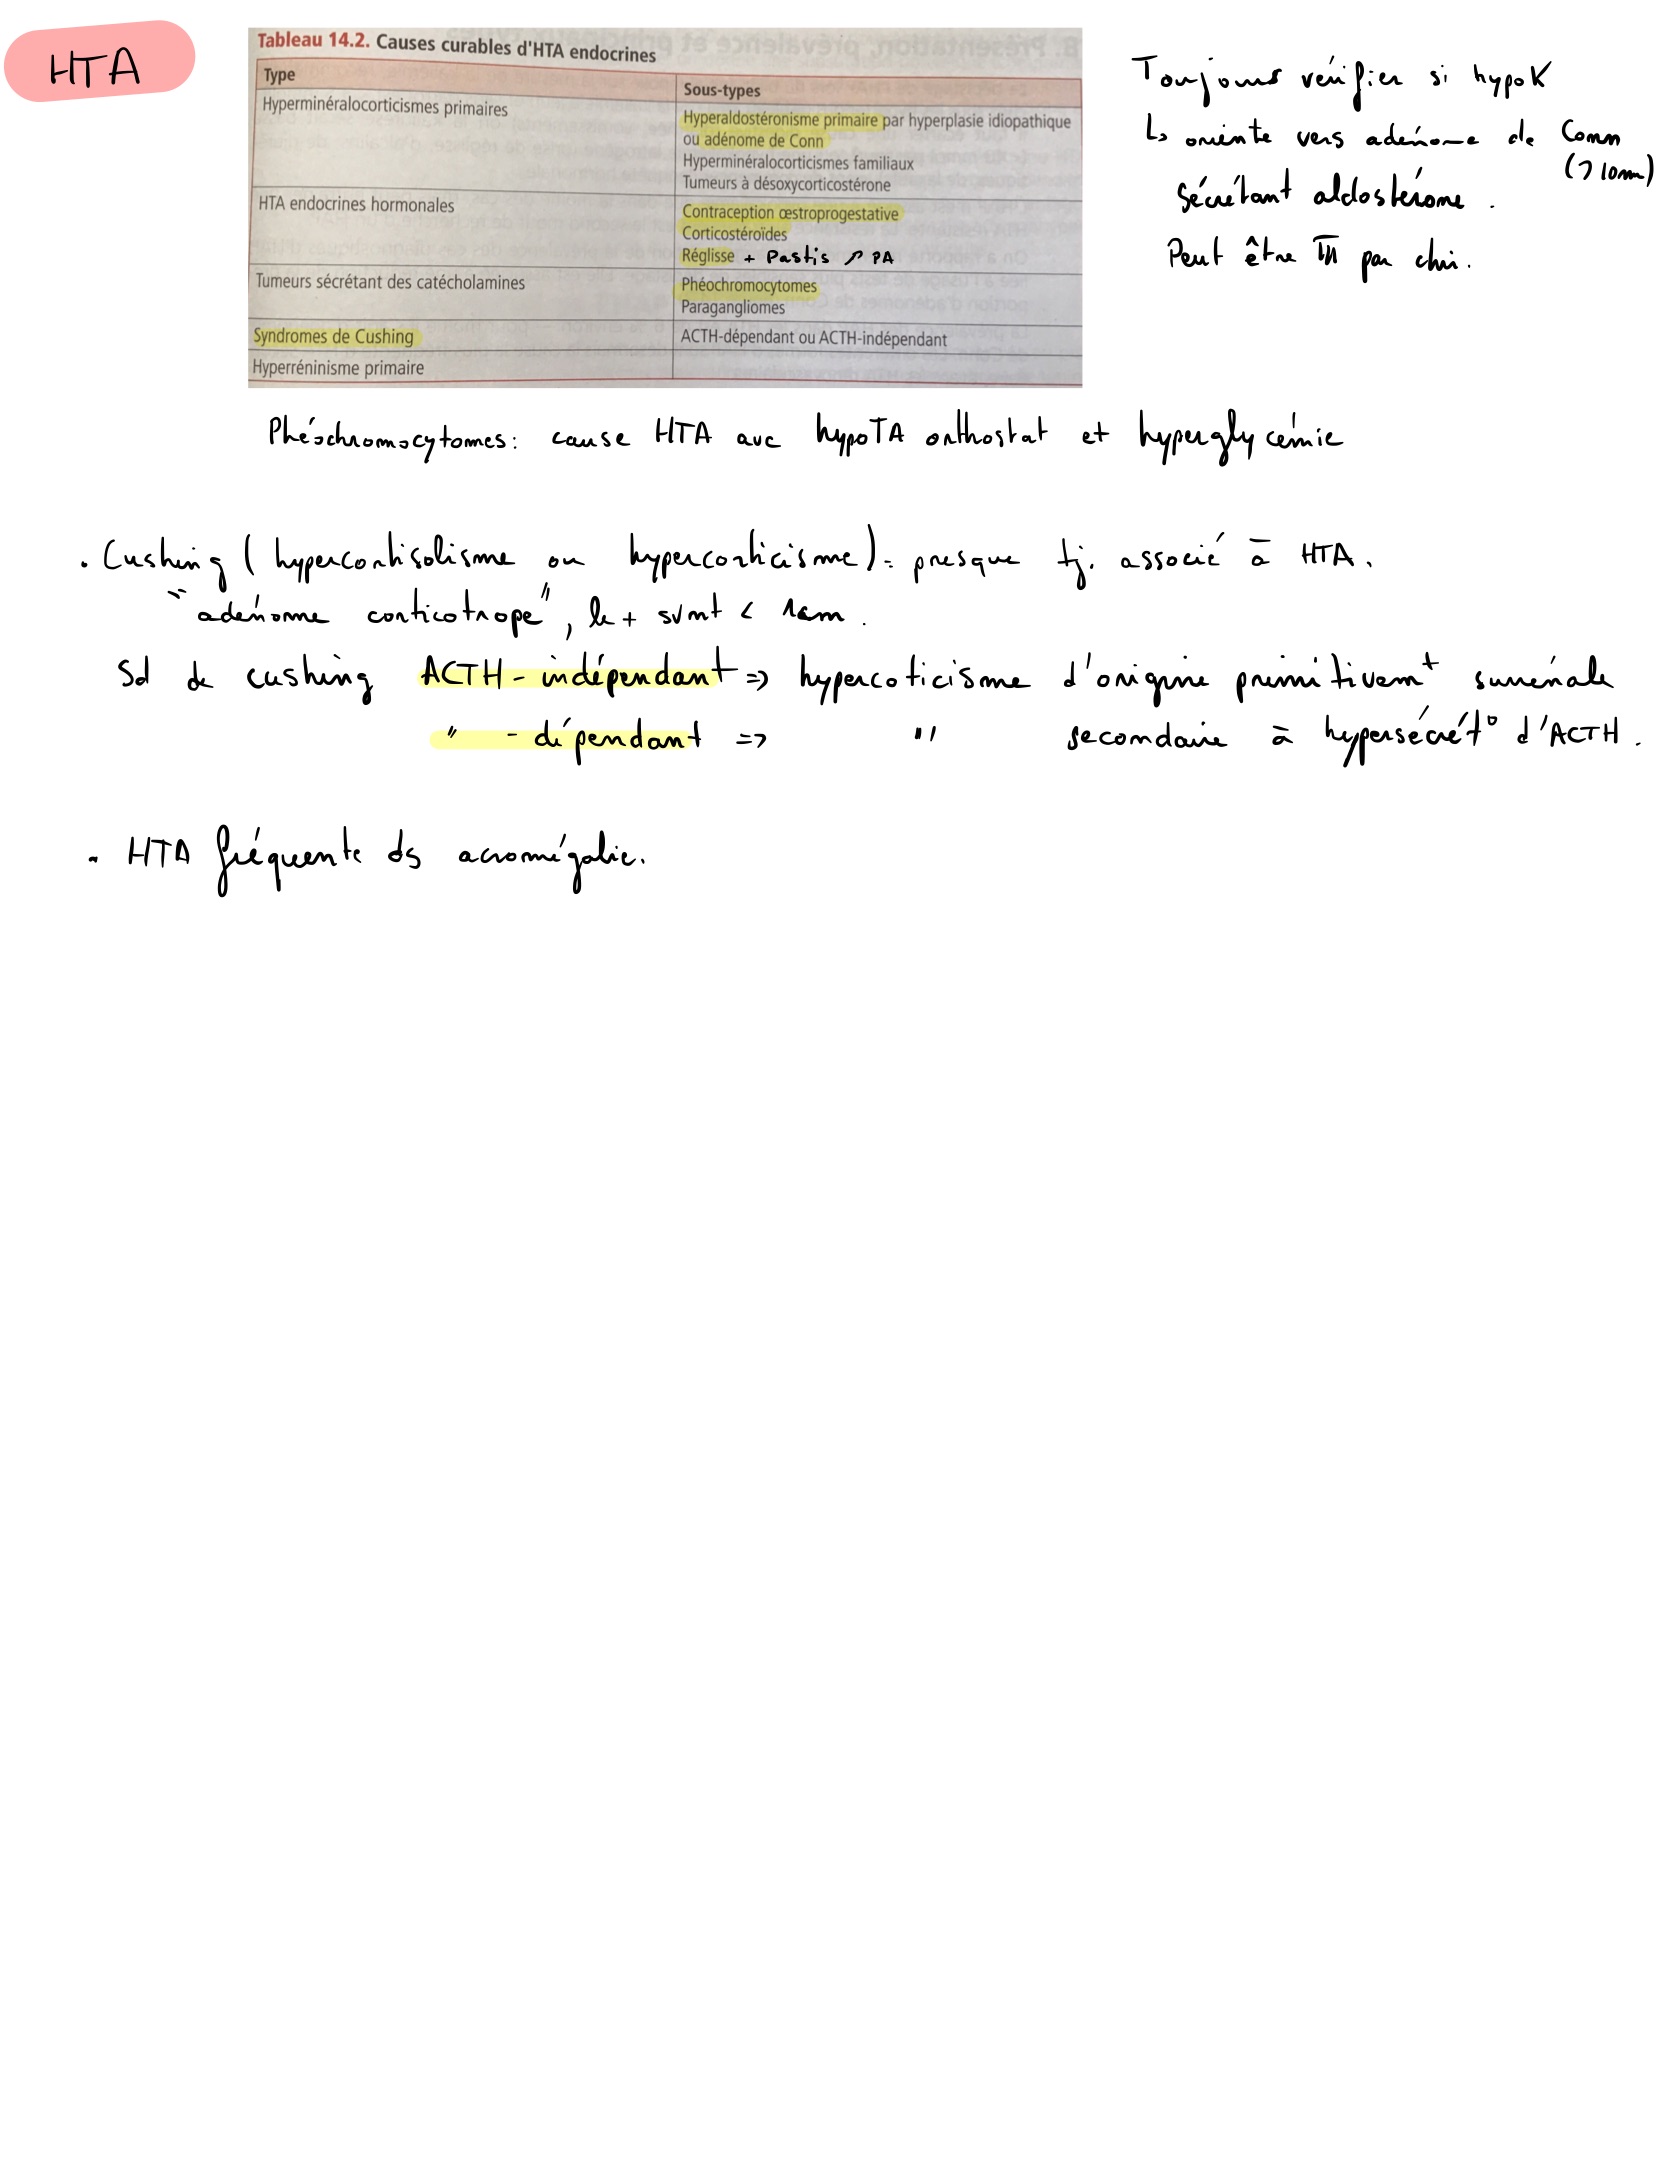 HTA
Tableau 14.2. Causes curables d'HTA endocrines
Type
Sous-types
Hyperminéralocorticismes primaires
Hyperaldostéronisme primaire par hyperplasie idiopathique
ou adénome de Conn
Hyperminéralocorticismes familiaux
Tumeurs à désoxycorticostérone
HTA endocrines hormonales
Contraception œstroprogestative
Corticostéroïdes
Réglisse + Pastis ↗ PA
Tumeurs sécrétant des catécholamines
Phéochromocytomes
Paragangliomes
Syndromes de Cushing
ACTH-dépendant ou ACTH-indépendant
Hyperréninisme primaire
Toujours vérifier si hypoK
↳ oriente vers adénome de Conn
(> 10mm)
sécrétant aldostérone.
Peut être par chir.
Phéochromocytomes: cause HTA avc hypoTA orthostat et hyperglycémie
. Cushing (hypercortisolisme ou hypercorticisme)= presque tj. associé à HTA.
"adénome corticotrope", le + svmt < 1cm.
Sd de cushing ACTH-indépendant => hypercoticisme d'origine primitivemt surrénale
" - dépendant => " secondaire à hypersécrét° d'ACTH.
. HTA fréquente ds acromégalie.